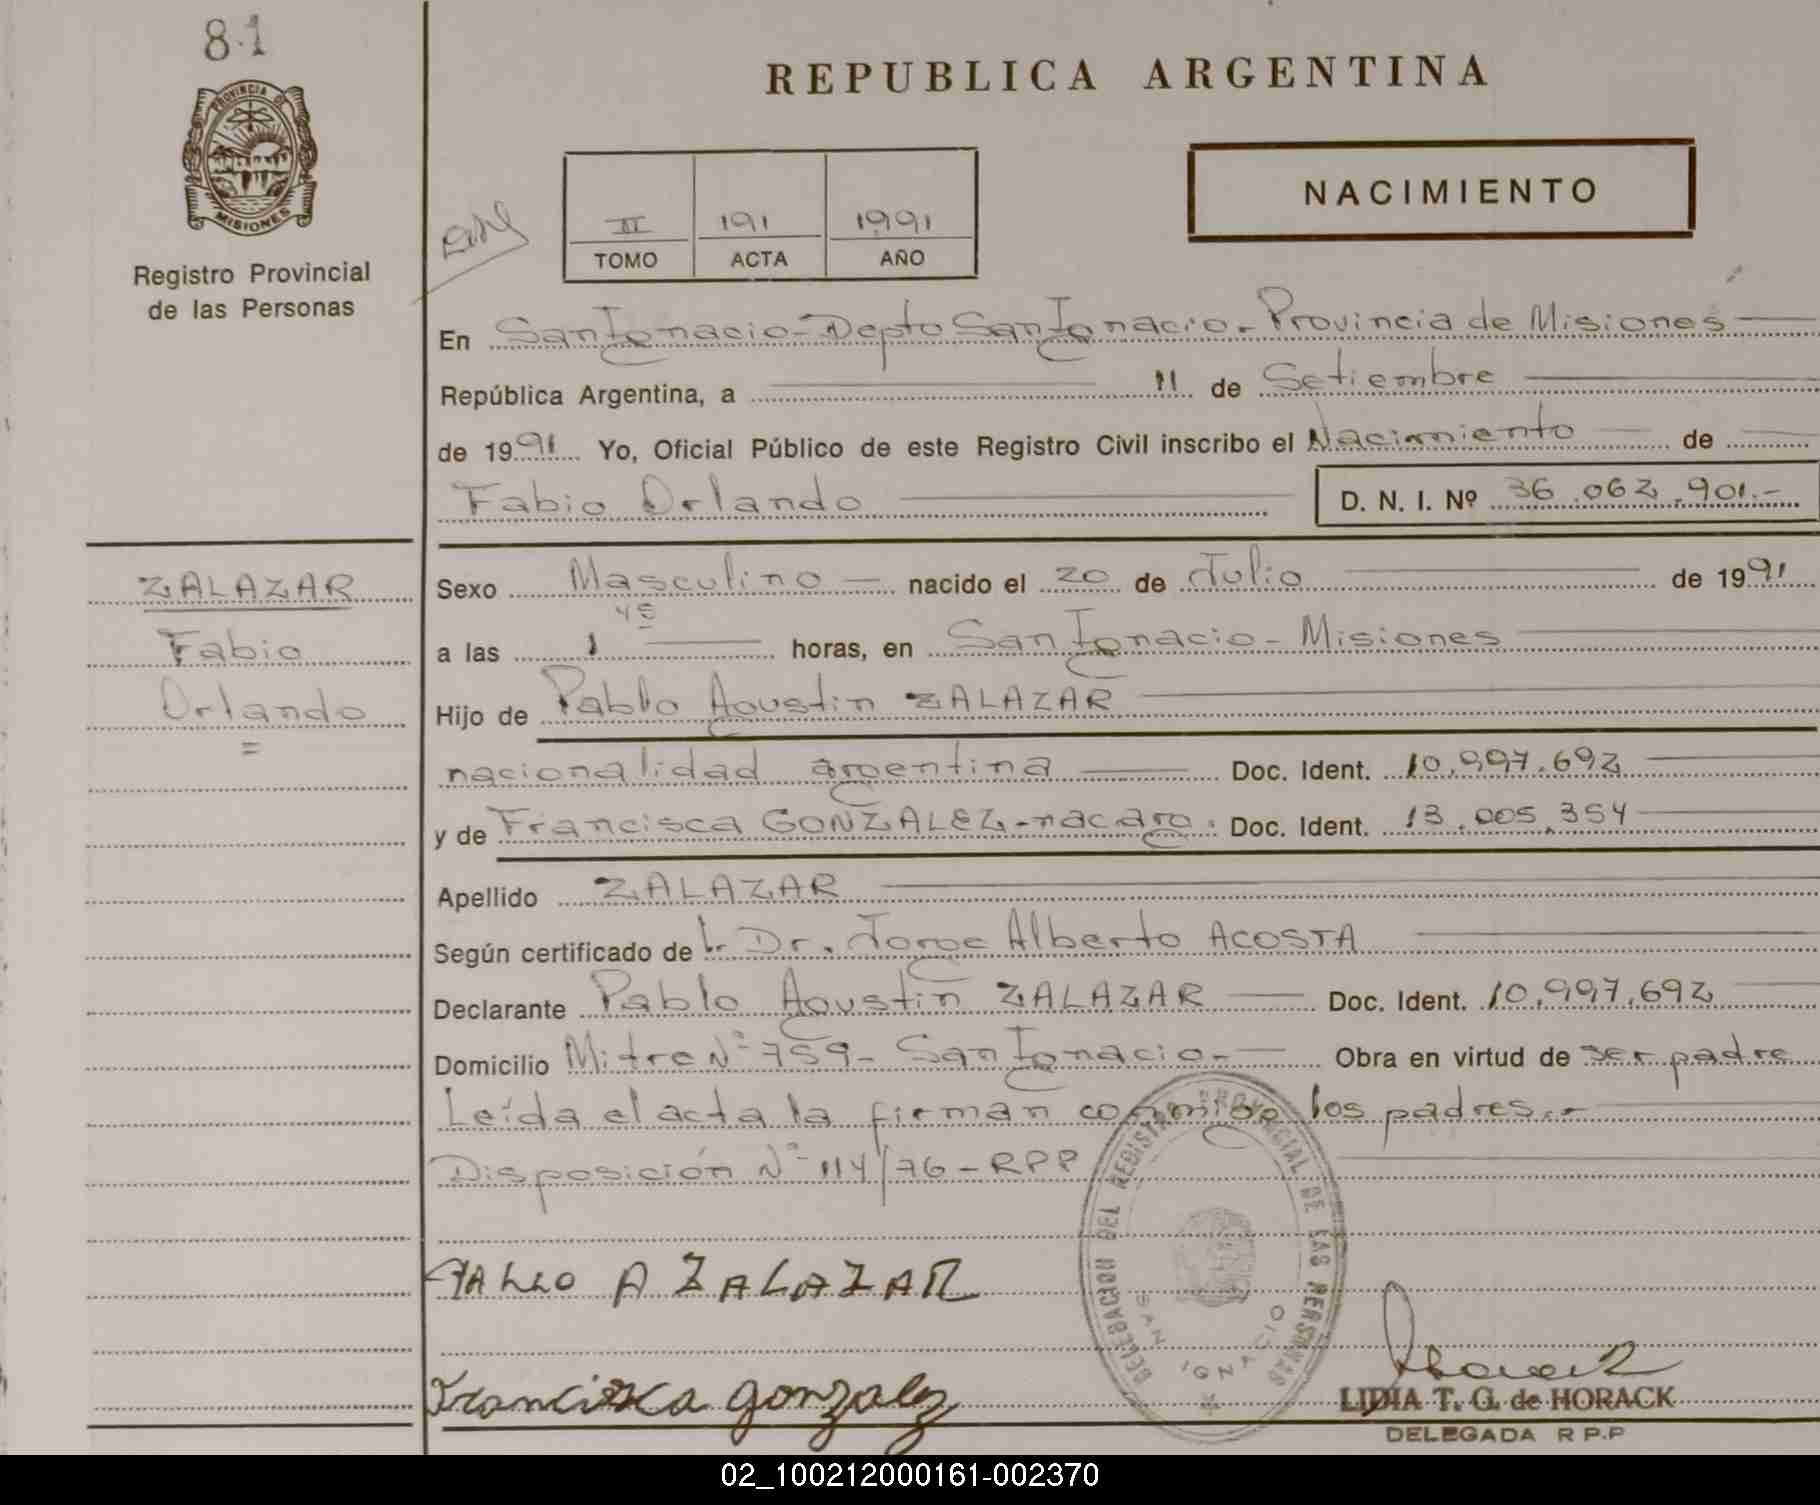 81
PROVINCIA DE
MISIONES
Registro Provincial
de las Personas
REPUBLICA ARGENTINA
NACIMIENTO
II 191 1991
TOMO ACTA AÑO
En San Ignacio - Depto San Ignacio. Provincia de Misiones
República Argentina, a 11 de Setiembre
de 1991 Yo, Oficial Público de este Registro Civil inscribo el Nacimiento de
Fabio Orlando D. N. I. Nº 36.062.901.-
ZALAZAR
Fabio
Orlando
=
Sexo Masculino nacido el 20 de Julio de 1991
a las 1 45 horas, en San Ignacio - Misiones
Hijo de Pablo Agustin ZALAZAR
nacionalidad argentina Doc. Ident. 10.997.692
y de Francisca GONZALEZ - nac. arg. Doc. Ident. 13.005.354
Apellido ZALAZAR
Según certificado de l. Dr. Jorge Alberto ACOSTA
Declarante Pablo Agustin ZALAZAR Doc. Ident. 10.997.692
Domicilio Mitre Nº 759 - San Ignacio.- Obra en virtud de ser padre
Leída el acta la firman conmigo los padres.-
Disposición Nº 114/76 - RPP
PABLO A ZALAZAR
Francisca gonzalez
DELEGACION DEL REGISTRO PROVINCIAL DE LAS PERSONAS
SAN IGNACIO
Horack
LIDIA T. G. de HORACK
DELEGADA R P.P
02_100212000161-002370